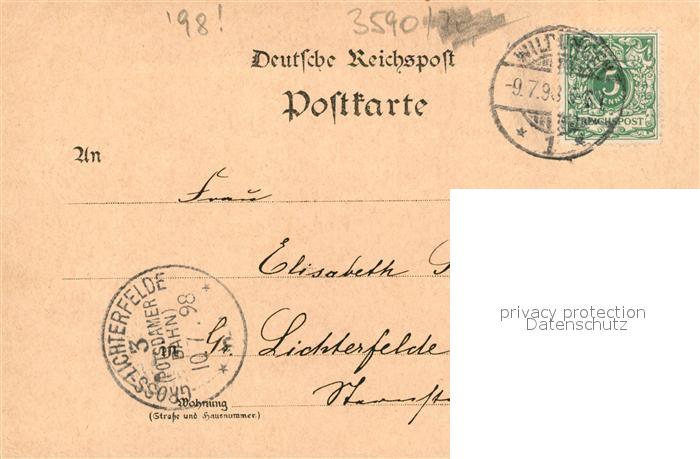 '98! 3590
Deutsche Reichspost
Postkarte
WILDUNGEN
-9.7.98
* 1 *
5
PFENNIG
REICHSPOST
An
Frau
Elisabeth
in Gr. Lichterfelde
GROSS-LICHTERFELDE
3
(POTSDAMER BAHN)
10.7.98
Wohnung
(Straße und Hausnummer.)
privacy protection
Datenschutz